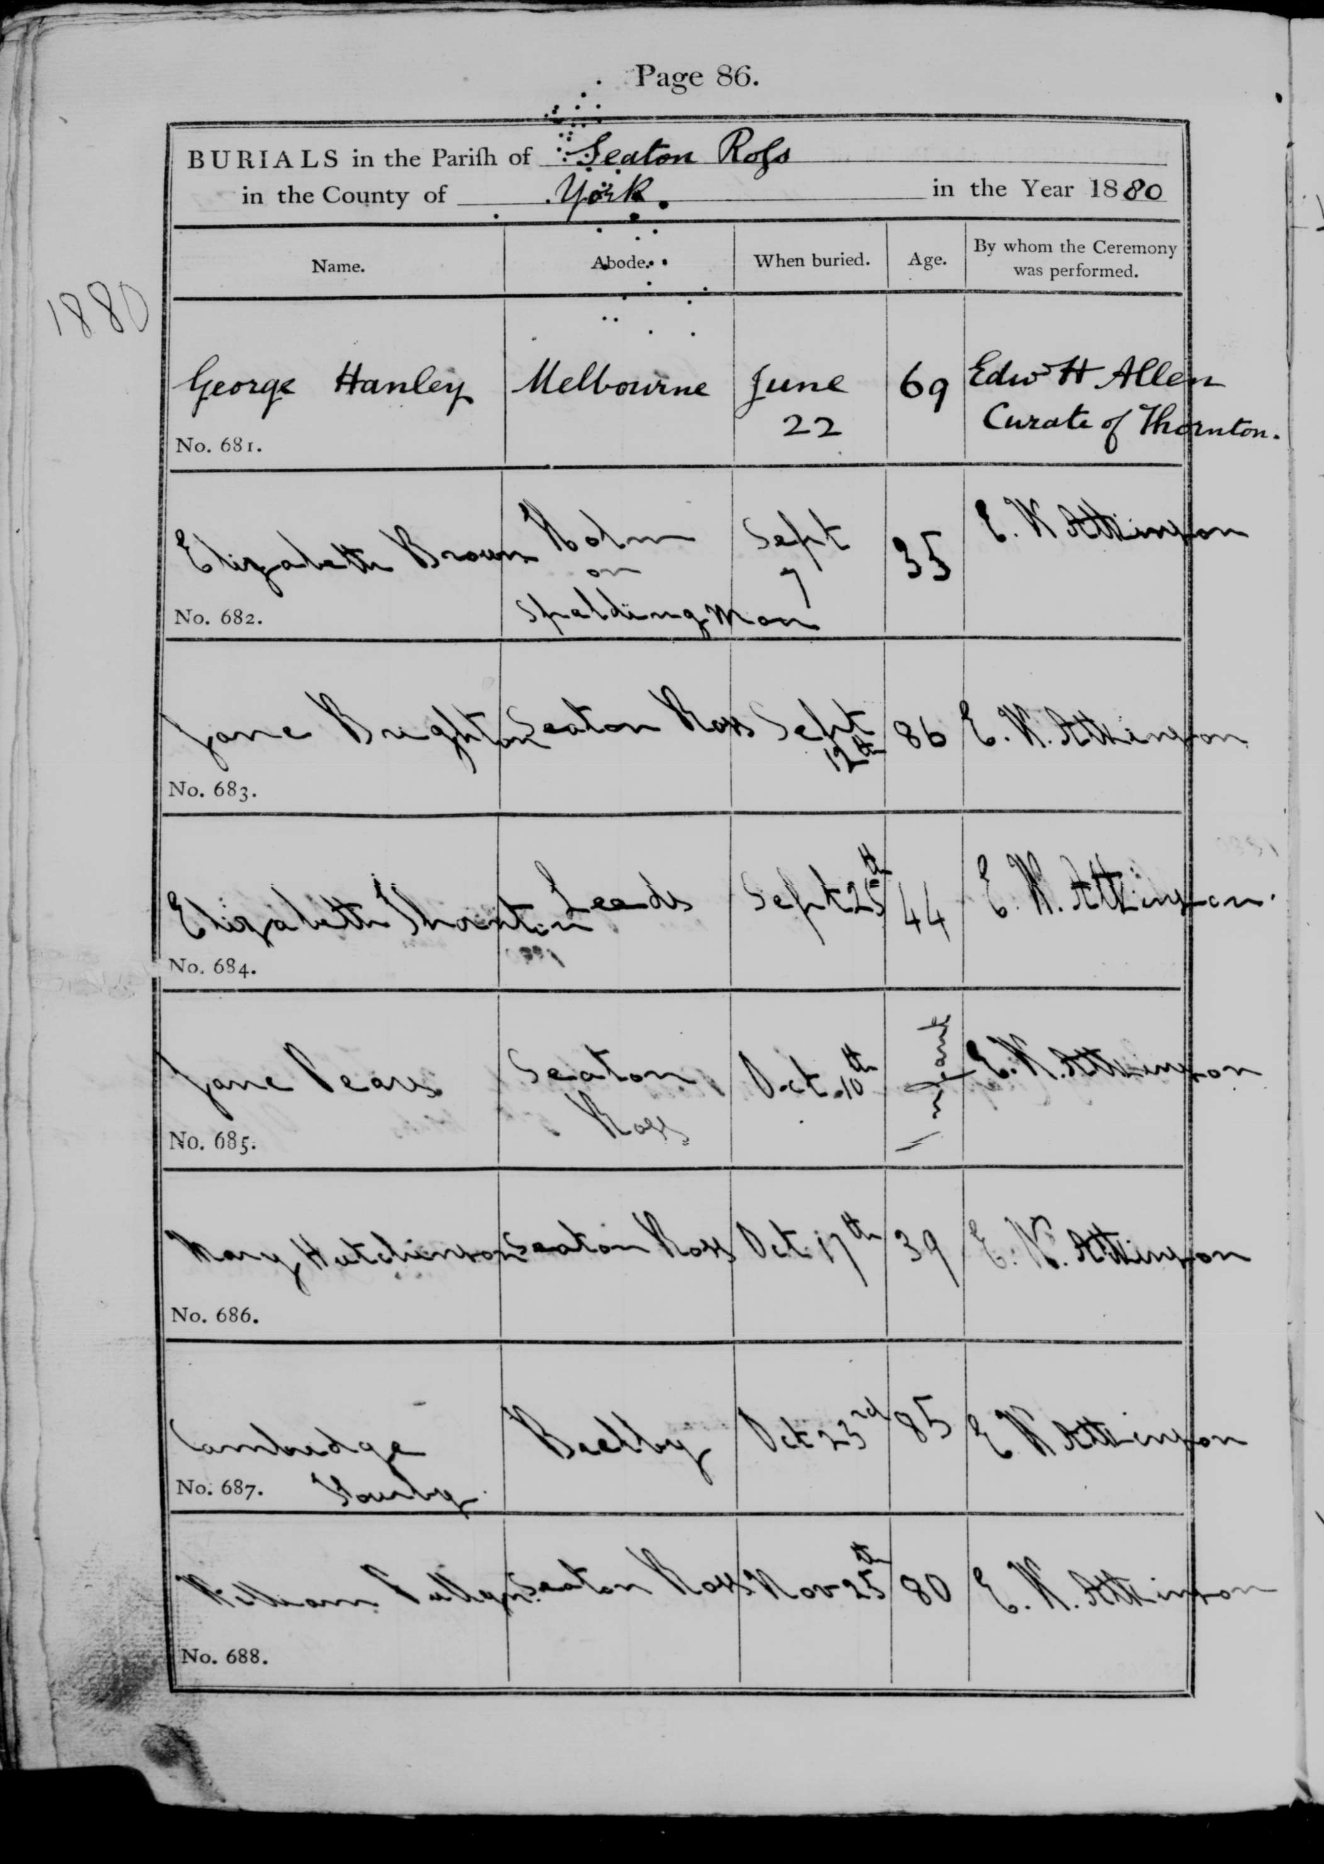 Page 86.
BURIALS in the Pariſh of Seaton Roſs
in the County of York. in the Year 1880
Name. Abode. When buried. Age. By whom the Ceremony
was performed.
1880
George Hanley Melbourne June 69 Edwd H Allen
22 Curate of Thornton.
No. 681.
Elizabeth Brown Holm Sept 35 E. W Atkinson
on 7
No. 682. Spalding Moor
Jane Brighton Seaton Ross Sept 86 E. W. Atkinson
12th
No. 683.
Elizabeth Thornton Leeds Sept 25th 44 E. W. Atkinson.
No. 684.
Jane Pears Seaton Oct. 10th Infant E. W. Atkinson
Ross
No. 685.
Mary Hutchinson Seaton Ross Oct 17th 39 E. W. Atkinson
No. 686.
Cambridge Bielby Oct 23rd 85 E W Atkinson
No. 687.
William Seaton Ross Nov 25th 80 E. W. Atkinson
No. 688.